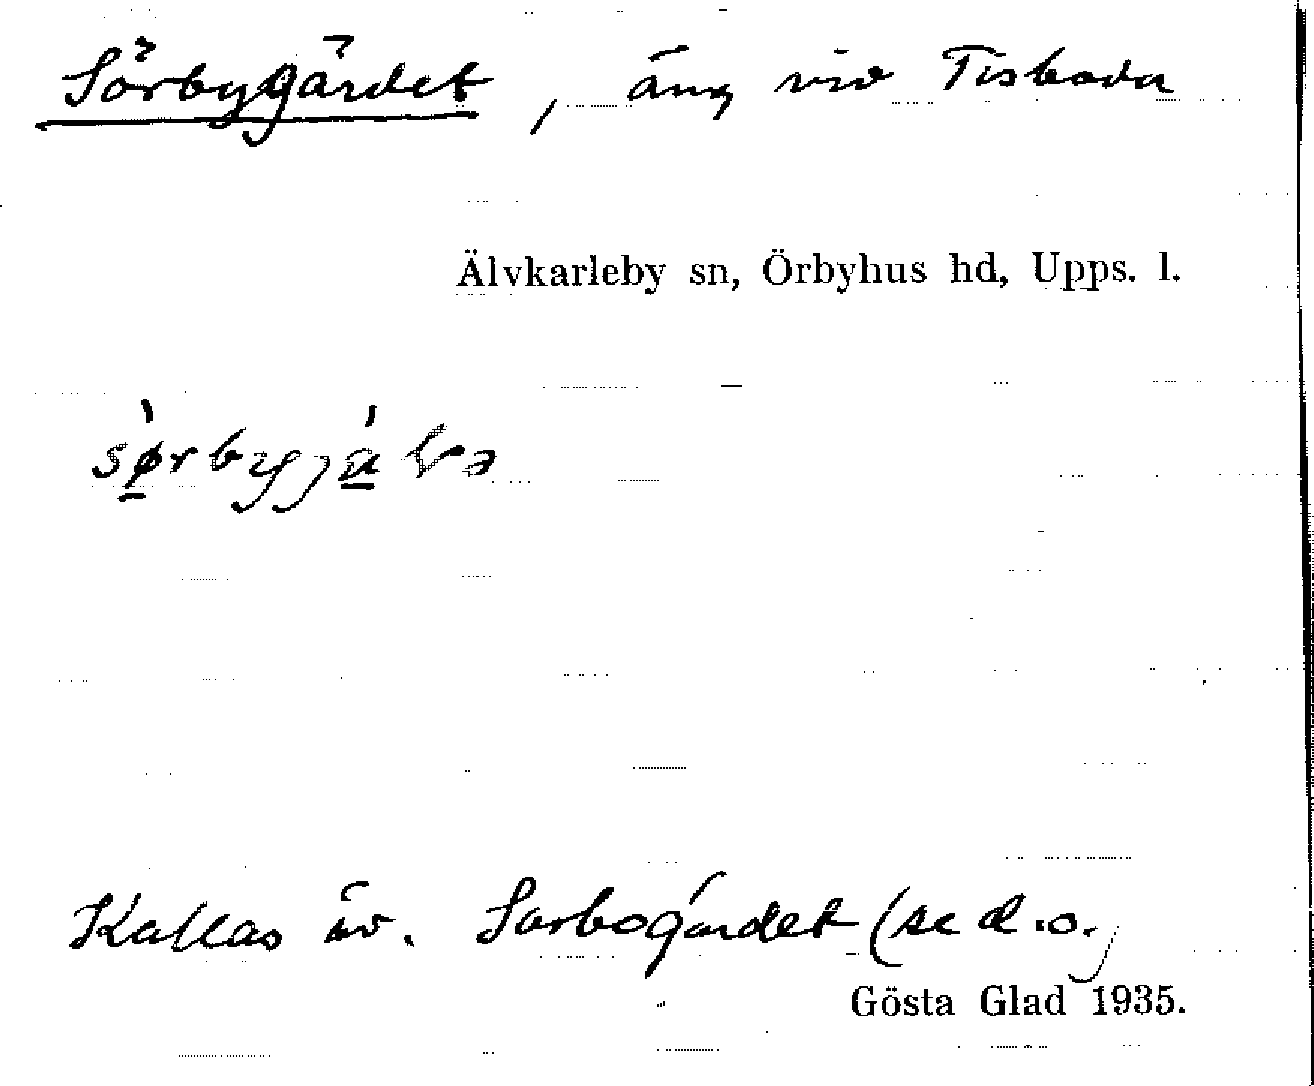 Sörbygärdet, äng vid Tisboda
Älvkarleby sn, Örbyhus hd, Upps. l.
Kallas äv. Sorbogärdet (se d.o.)
Gösta Glad 1935.